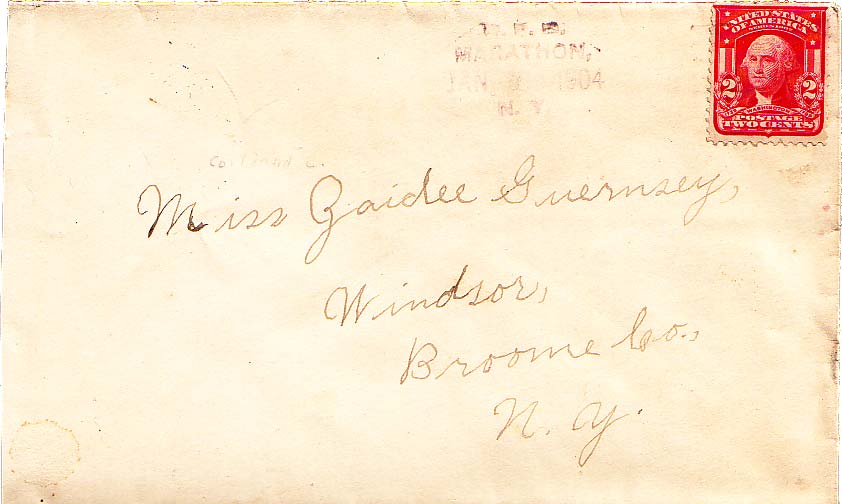 R. F. D.
MARATHON,
JAN 1904
N. Y.
UNITED STATES
OF AMERICA
SERIES 1902
2 2
WASHINGTON
POSTAGE
TWO CENTS
Cortland C.
Miss Zaidee Guernsey,
Windsor,
Broome Co.,
N. Y.